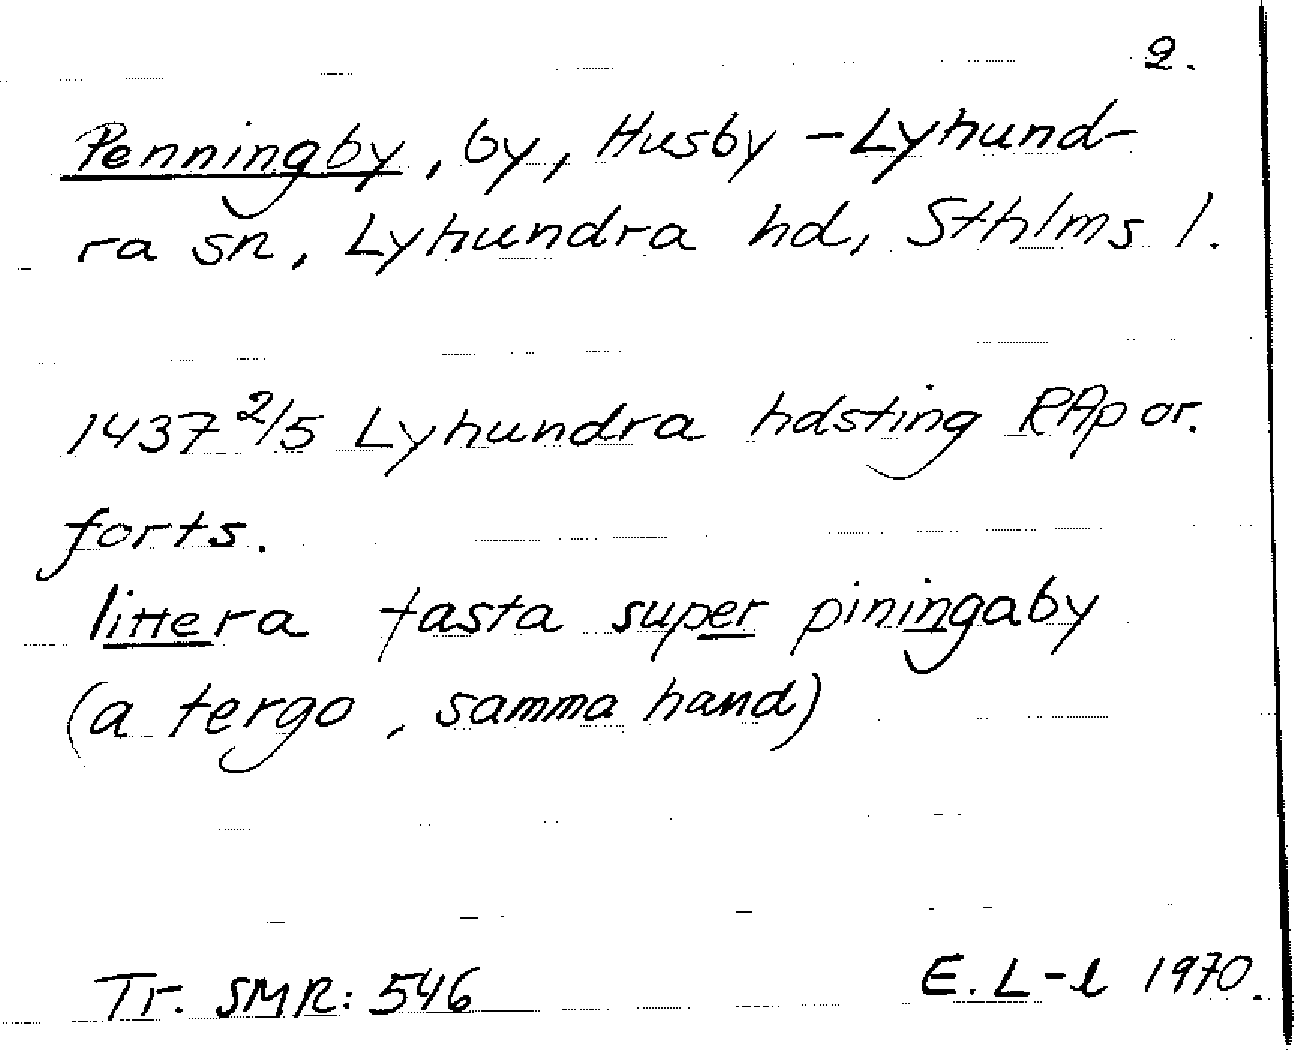 2.
Penningby, by, Husby-Lyhund-
ra sn, Lyhundra hd, Sthlms l.
1437 2/5 Lyhundra hdsting RAp or.
forts.
littera fasta super piningaby
(a tergo, samma hand)
Tr. SMR: 546 E. L-l 1970.